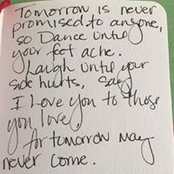 Tomorrow is never
promised to anyone,
so Dance until
your feet ache.
Laugh until your
side hurts, Say
I Love You to those
you love,
for tomorrow may
never come.